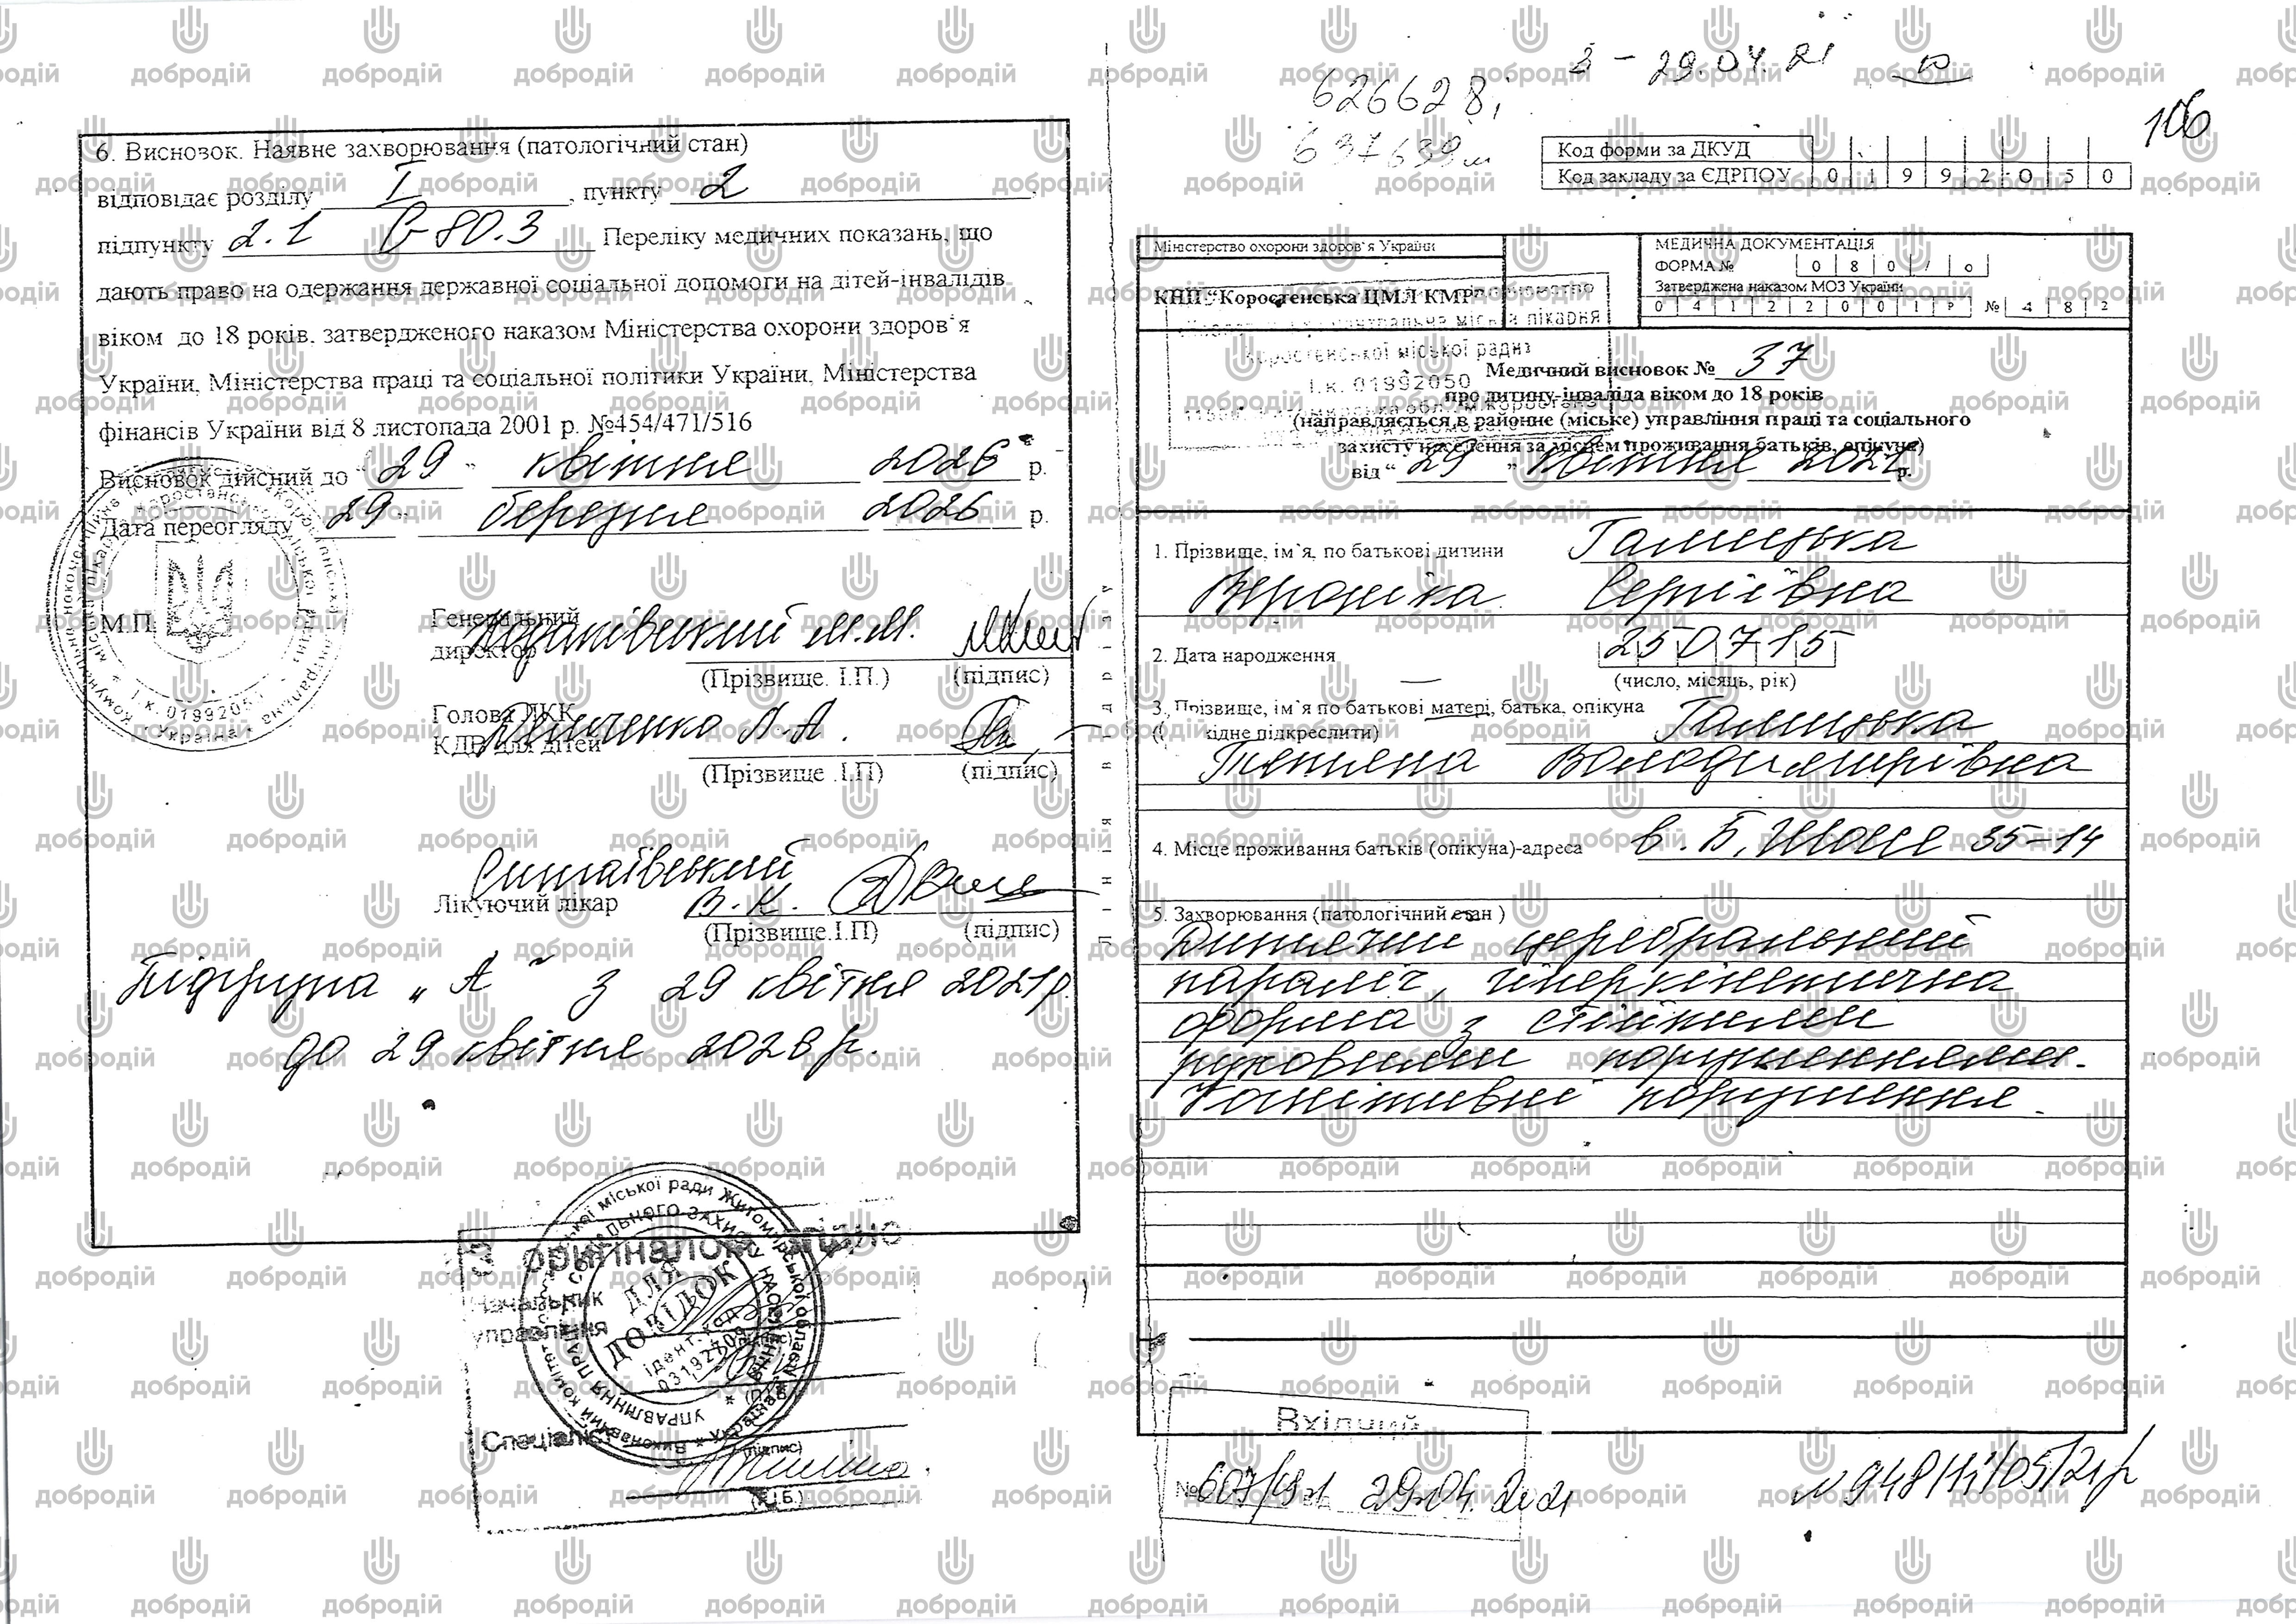 6. Висновок. Наявне захворювання (патологічний стан)
відповідає розділу I, пункту 2
підпункту 2.1 G 80.3 Переліку медичних показань, що
дають право на одержання державної соціальної допомоги на дітей-інвалідів
віком до 18 років, затвердженого наказом Міністерства охорони здоров`я
України, Міністерства праці та соціальної політики України, Міністерства
фінансів України від 8 листопада 2001 р. №454/471/516
Висновок дійсний до "29" квітня 2026 р.
Дата переогляду "29" березня 2026 р.
М.П.
Генеральний
директор М.М.
(Прізвище. І.П.) (підпис)
Голова ЛКК
КДВ для дітей Л.А.
(Прізвище .І.П) (підпис)
Лікуючий лікар В.К.
(Прізвище.І.П) (підпис)
Підгрупа "А" з 29 квітня 2021р.
до 29 квітня 2026р.
З оригіналом згідно
Начальник
управління
ДЛЯ
ДОВІДОК
ідент. код
Спеціаліст
(підпис)
(П.І.Б.)
лінія відрізу
626628,
637639
3 - 29.04.21
106
Код форми за ДКУД
Код закладу за ЄДРПОУ 01992050
Міністерство охорони здоров`я України
КНП "Коростенська ЦМЛ КМР"
МЕДИЧНА ДОКУМЕНТАЦІЯ
ФОРМА № 080/о
Затверджена наказом МОЗ України
04122001Р № 482
Коростенської міської ради
І.к. 01992050
Медичний висновок № 37
про дитину-інваліда віком до 18 років
(направляється в районне (міське) управління праці та соціального
захисту населення за місцем проживання батьків, опікуна)
від "29" квітня 2021 р.
1. Прізвище, ім`я, по батькові дитини Галицька
Вероніка Сергіївна
2. Дата народження 250715
(число, місяць, рік)
3. Прізвище, ім`я по батькові матері, батька, опікуна Галицька
(необхідне підкреслити)
Тетяна Володимирівна
4. Місце проживання батьків (опікуна)-адреса в. Б. Шосе 35-14
5. Захворювання (патологічний стан )
Дитячий церебральний
параліч, гіперкінетична
форма з стійкими
руховими порушеннями.
Когнітивні порушення.
Вхідний
№ 607/ від 29.04.2021
добродій